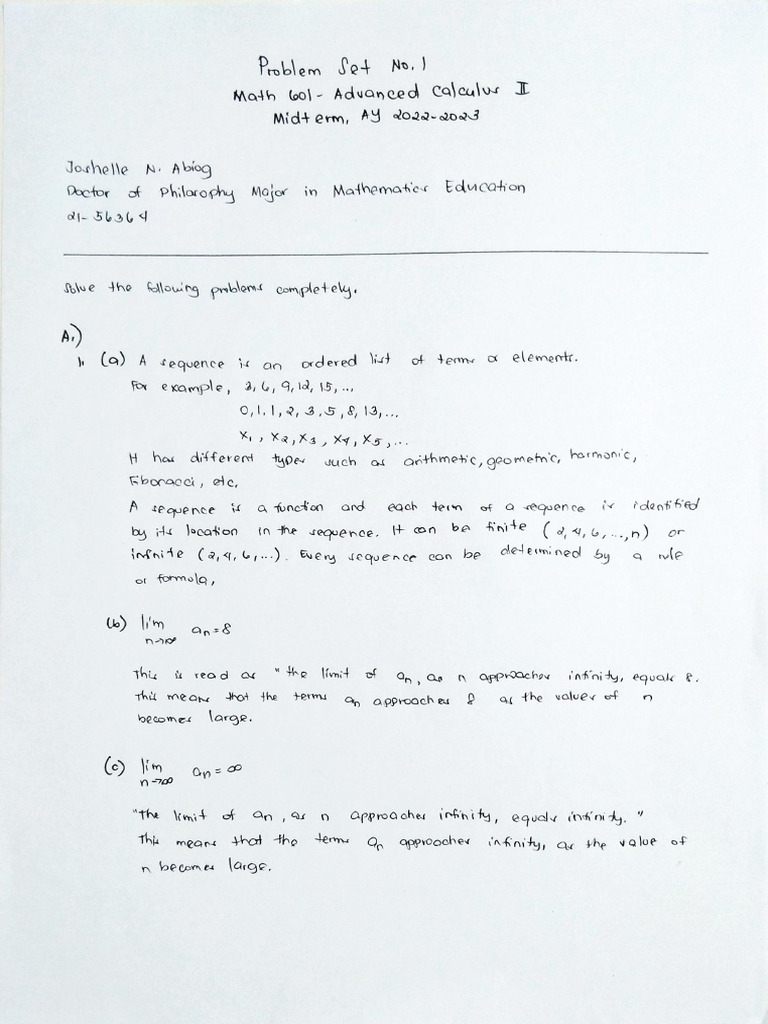 Problem Set No. 1
Math 601 - Advanced Calculus II
Midterm, AY 2022-2023
Joshelle N. Abiog
Doctor of Philosophy Major in Mathematics Education
21-56364
Solve the following problems completely.
A.)
1. (a) A sequence is an ordered list of terms or elements.
For example, 3, 6, 9, 12, 15, ...
0, 1, 1, 2, 3, 5, 8, 13, ...
x₁, x₂, x₃, x₄, x₅, ...
It has different types such as arithmetic, geometric, harmonic,
Fibonacci, etc,
A sequence is a function and each term of a sequence is identified
by its location in the sequence. It can be finite (2, 4, 6, ..., n) or
infinite (2, 4, 6, ...). Every sequence can be determined by a rule
or formula,
(b) lim n→∞ aₙ = 8
This is read as "the limit of aₙ, as n approaches infinity, equals 8.
This means that the terms aₙ approaches 8 as the values of n
becomes large.
(c) lim n→∞ aₙ = ∞
"The limit of aₙ, as n approaches infinity, equals infinity."
This means that the terms aₙ approaches infinity, as the value of
n becomes large.